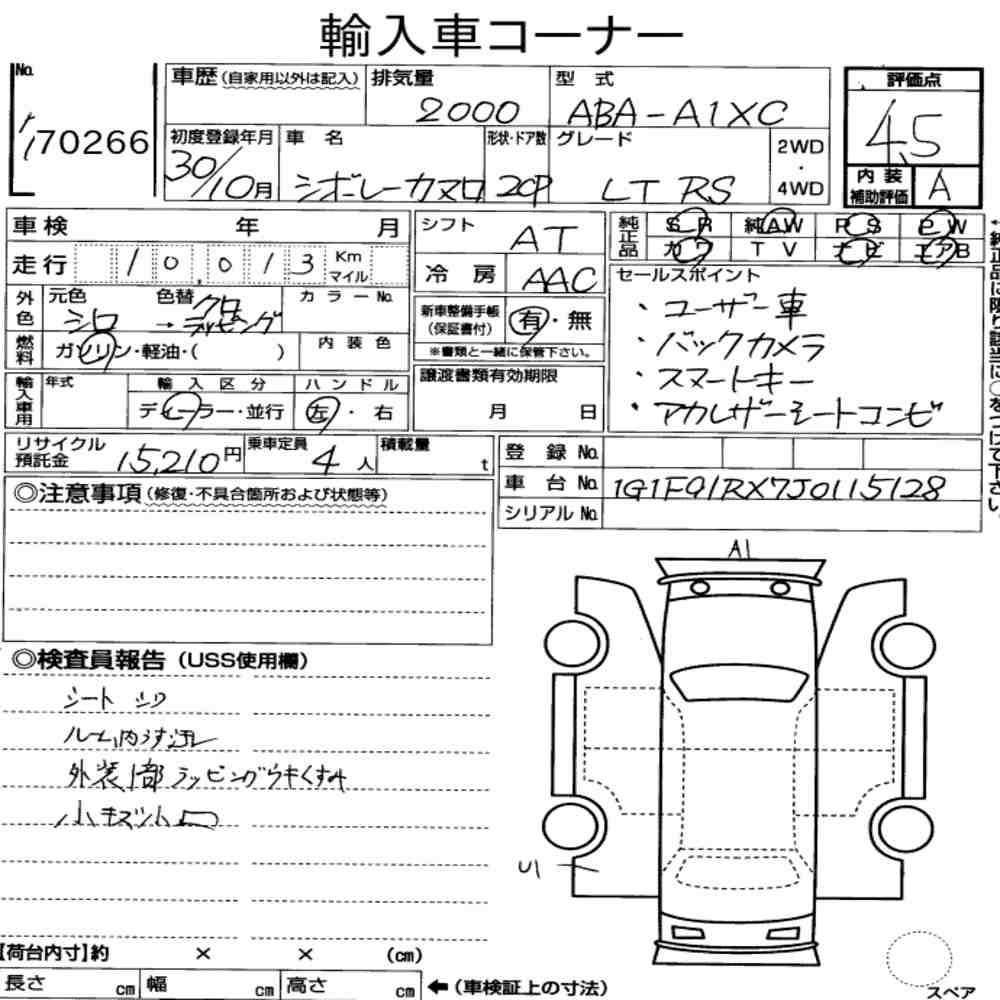 輸入車コーナー
No. 車歴 (自家用以外は記入) 排気量 2000 型式 ABA-A1XC 評価点 4.5
170266 初度登録年月 30/10月 車名 シボレーカマロ 形状・ドア数 2CP グレード LT RS 2WD・4WD 内装補助評価 A
車検 年 月 シフト AT 純正品 SR 純AW PS PW
走行 10,013 Km マイル 冷房 AAC カワ TV ナビ エアB
外色 元色 シロ 色替 クロ カラーNo. セールスポイント
→ ラッピング 新車整備手帳 (保証書付) 有・無 ・ユーザー車
燃料 ガソリン・軽油・( ) 内装色 ※書類と一緒に保管下さい。 ・バックカメラ
輸入車用 年式 輸入区分 ハンドル 譲渡書類有効期限 ・スマートキー
ディーラー・並行 左・右 月 日 ・アカレザーシートコンビ
リサイクル預託金 15,210円 乗車定員 4人 積載量 t 登録No.
車台No. 1G1F91RX7J0115128
◎注意事項 (修復・不具合箇所および状態等) シリアルNo.
A1
◎検査員報告 (USS使用欄)
シート シワ
ルーム内うす汚レ
外装1部ラッピングウキくすみ
小キズ小凹
U1
【荷台内寸】約 × × (cm)
長さ cm 幅 cm 高さ cm ←(車検証上の寸法)
スペア